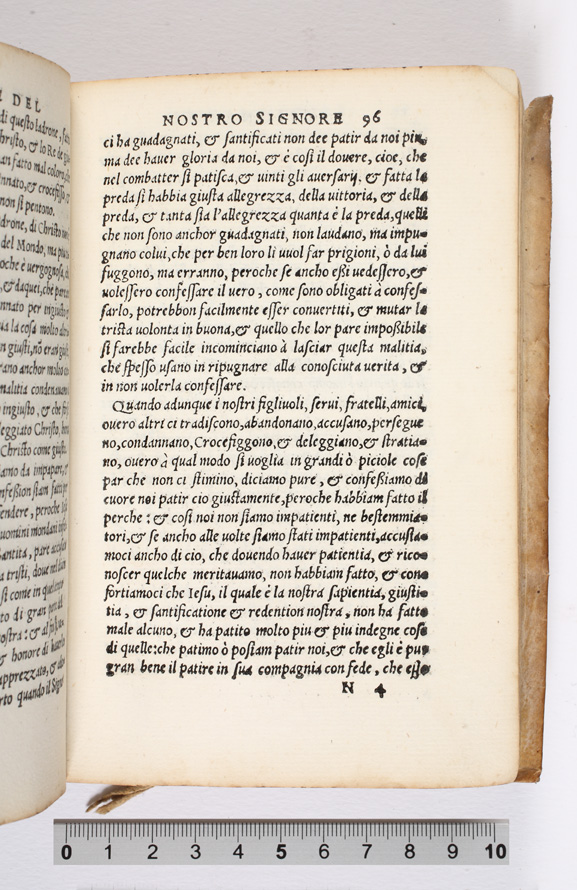 I DEL
di questo ladrone, 
Christo, & lo Re de
an fatto mal coloro, che
nnato, & crocefisso, &
non si pentono.
drone, di Christo
del Mondo, ma
oche è uergognosa,
, & da quei, che
nnato per
ua la cosa molto
n giusti, nō eran
rano anchor molto
malitia condennauon
ingiusto, & che
eggiato Christo,
Christo come giusto
amo da imparar, &
nfeßion siam fatti
fendere, peroche
uomini mondani
Santita, pare
a tristi, doue
si come in
to di gran
ostra: & al
& honore di
apprezzato, &
rto quando il Signo
NOSTRO SIGNORE 96
ci ha guadagnati, & santificati non dee patir da noi piu,
ma dee hauer gloria da noi, & è cosi il douere, cioe, che
nel combatter si patisca, & uinti gli auersarij, & fatta la
preda si habbia giusta allegrezza, della uittoria, & della
preda, & tanta sia l'allegrezza quanta è la preda, quelli
che non sono anchor guadagnati, non laudano, ma impu-
gnano colui, che per ben loro li uuol far prigioni, ò da lui
fuggono, ma erranno, peroche se ancho eßi uedessero, &
uolessero confessare il uero, come sono obligati à confes-
sarlo, potrebbon facilmente esser conuertiti, & mutar la
trista uolonta in buona, & quello che lor pare impoßibile
si farebbe facile incominciano à lasciar questa malitia,
che spesso usano in ripugnare alla conosciuta uerita, &
in non uolerla confessare.
Quando adunque i nostri figliuoli, serui, fratelli, amici,
ouero altri ci tradiscono, abandonano, accusano, persegue
no, condannano, Crocefiggono, & deleggiano, & stratia-
no, ouero à qual modo si uoglia in grandi ò piciole cose
par che non ci stimino, diciamo pure, & confeßiamo di
cuore noi patir cio giustamente, peroche habbiam fatto il
perche: & cosi noi non siamo impatienti, ne bestemmia-
tori, & se ancho alle uolte siamo stati impatienti, accusia-
moci ancho di cio, che douendo hauer patientia, & rico-
noscer quelche meritauamo, non habbiam fatto, & con-
fortiamoci che Iesu, il quale è la nostra sapientia, giusti-
tia, & santificatione & redention nostra, non ha fatto
male alcuno, & ha patito molto piu & piu indegne cose
di quelle: che patimo ò postam patir noi, & che egli è pur
gran bene il patire in sua compagnia con fede, che esso
N 4
0 1 2 3 4 5 6 7 8 9 10